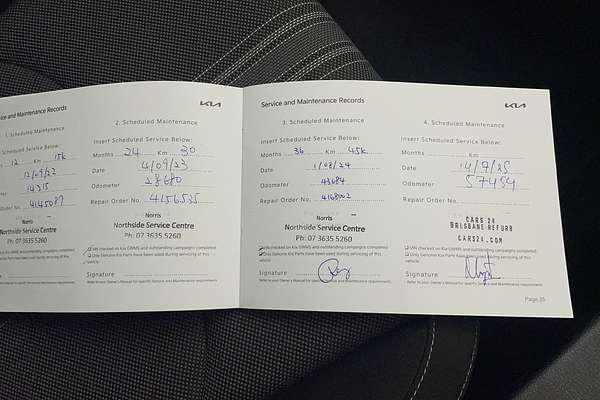 Service and Maintenance Records
KIA
1. Scheduled Maintenance
Scheduled Service Below:
12 Km 15K
12/09/22
14215
Order No. 4145087
Norris
Northside Service Centre
Ph: 07 3635 5260
2. Scheduled Maintenance
Insert Scheduled Service Below:
Months 24 Km 30
Date 4/09/23
Odometer 28680
Repair Order No. 4156535
Norris
Northside Service Centre
Ph: 07 3635 5260
VIN checked on Kia GWMS and outstanding campaigns completed
Only Genuine Kia Parts have been used during servicing of this vehicle
Signature
Refer to your Owner's Manual for specific Service and Maintenance requirements
Service and Maintenance Records
KIA
3. Scheduled Maintenance
Insert Scheduled Service Below:
Months 36 Km 45K
Date 1/08/24
Odometer 43684
Repair Order No. 4168002
Norris
Northside Service Centre
Ph: 07 3635 5260
VIN checked on Kia GWMS and outstanding campaigns completed
Only Genuine Kia Parts have been used during servicing of this vehicle
Signature
Refer to your Owner's Manual for specific Service and Maintenance requirements
4. Scheduled Maintenance
Insert Scheduled Service Below:
Months Km
Date 14/9/25
Odometer 57454
Repair Order No.
CARS 24
BRISBANE REFURB
CARS24.COM
VIN checked on Kia GWMS and outstanding campaigns completed
Only Genuine Kia Parts have been used during servicing of this vehicle
Signature
Refer to your Owner's Manual for specific Service and Maintenance requirements
Page 35